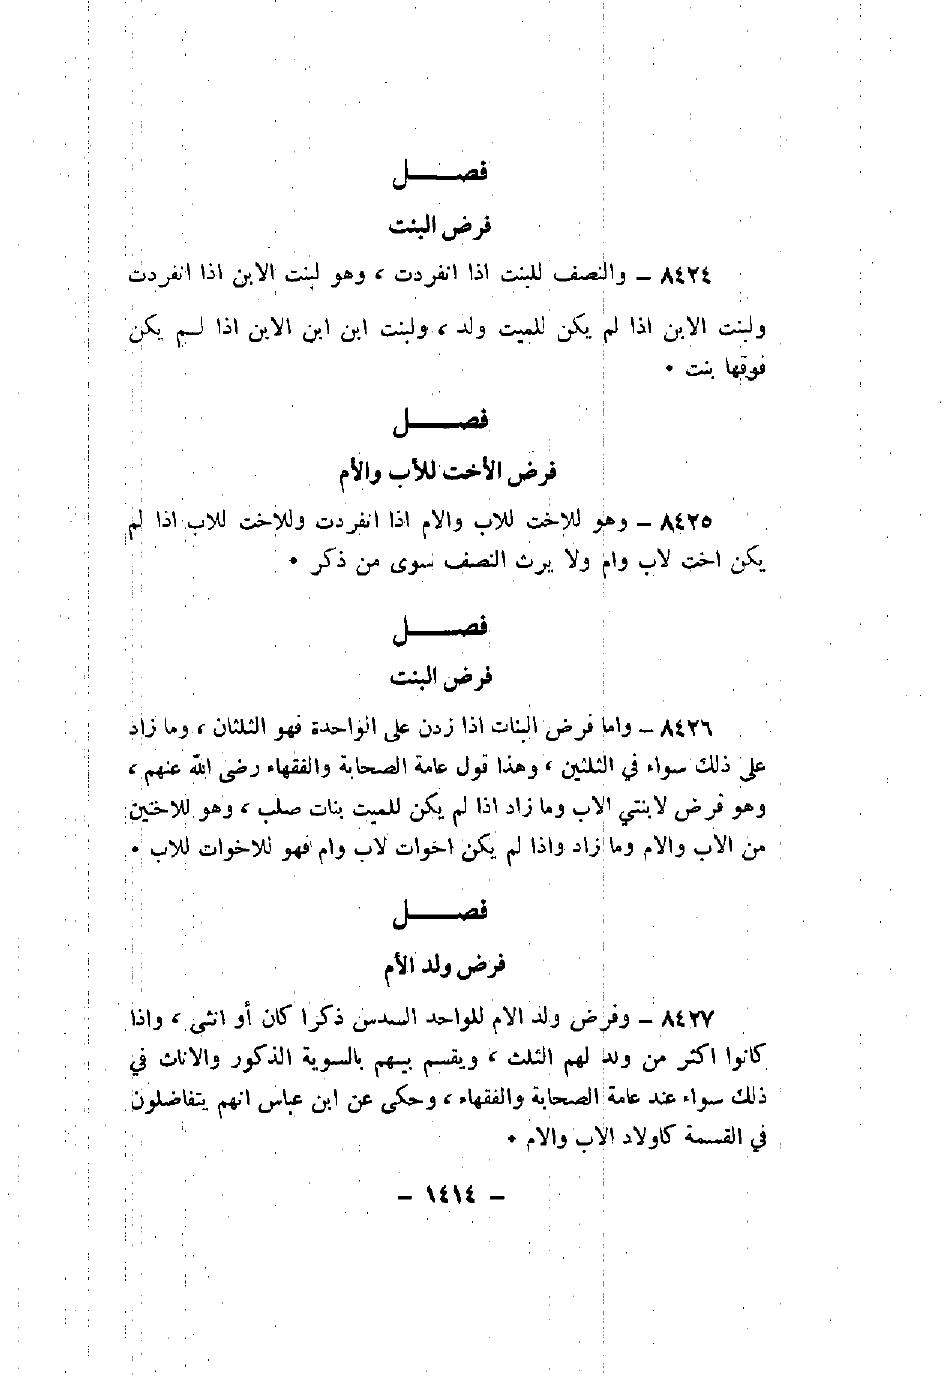 فصـــــل
فرض البنت
٨٤٢٤ – والنصف للبنت اذا انفردت ، وهو لبنت الابن اذا انفردت
ولبنت الابن اذا لم يكن للميت ولد ، ولبنت ابن ابن الابن اذا لــم يكن
فوقها بنت •
فصـــــل
فرض الأخت للأب والأم
٨٤٢٥ – وهو للاخت للاب والام اذا انفردت وللاخت للاب اذا لم
يكن اخت لاب وام ولا يرث النصف سوى من ذكر •
فصـــــل
فرض البنت
٨٤٢٦ – واما فرض البنات اذا زدن على الواحدة فهو الثلثان ، وما زاد
على ذلك سواء في الثلثين ، وهذا قول عامة الصحابة والفقهاء رضى الله عنهم ،
وهو فرض لابنتي الاب وما زاد اذا لم يكن للميت بنات صلب ، وهو للاختين
من الاب والام وما زاد واذا لم يكن اخوات لاب وام فهو للاخوات للاب •
فصـــــل
فرض ولد الأم
٨٤٢٧ – وفرض ولد الام للواحد السدس ذكرا كان أو انثى ، واذا
كانوا اكثر من ولد لهم الثلث ، ويقسم بينهم بالسوية الذكور والاناث في
ذلك سواء عند عامة الصحابة والفقهاء ، وحكى عن ابن عباس انهم يتفاضلون
في القسمة كاولاد الاب والام •
– ١٤١٤ –